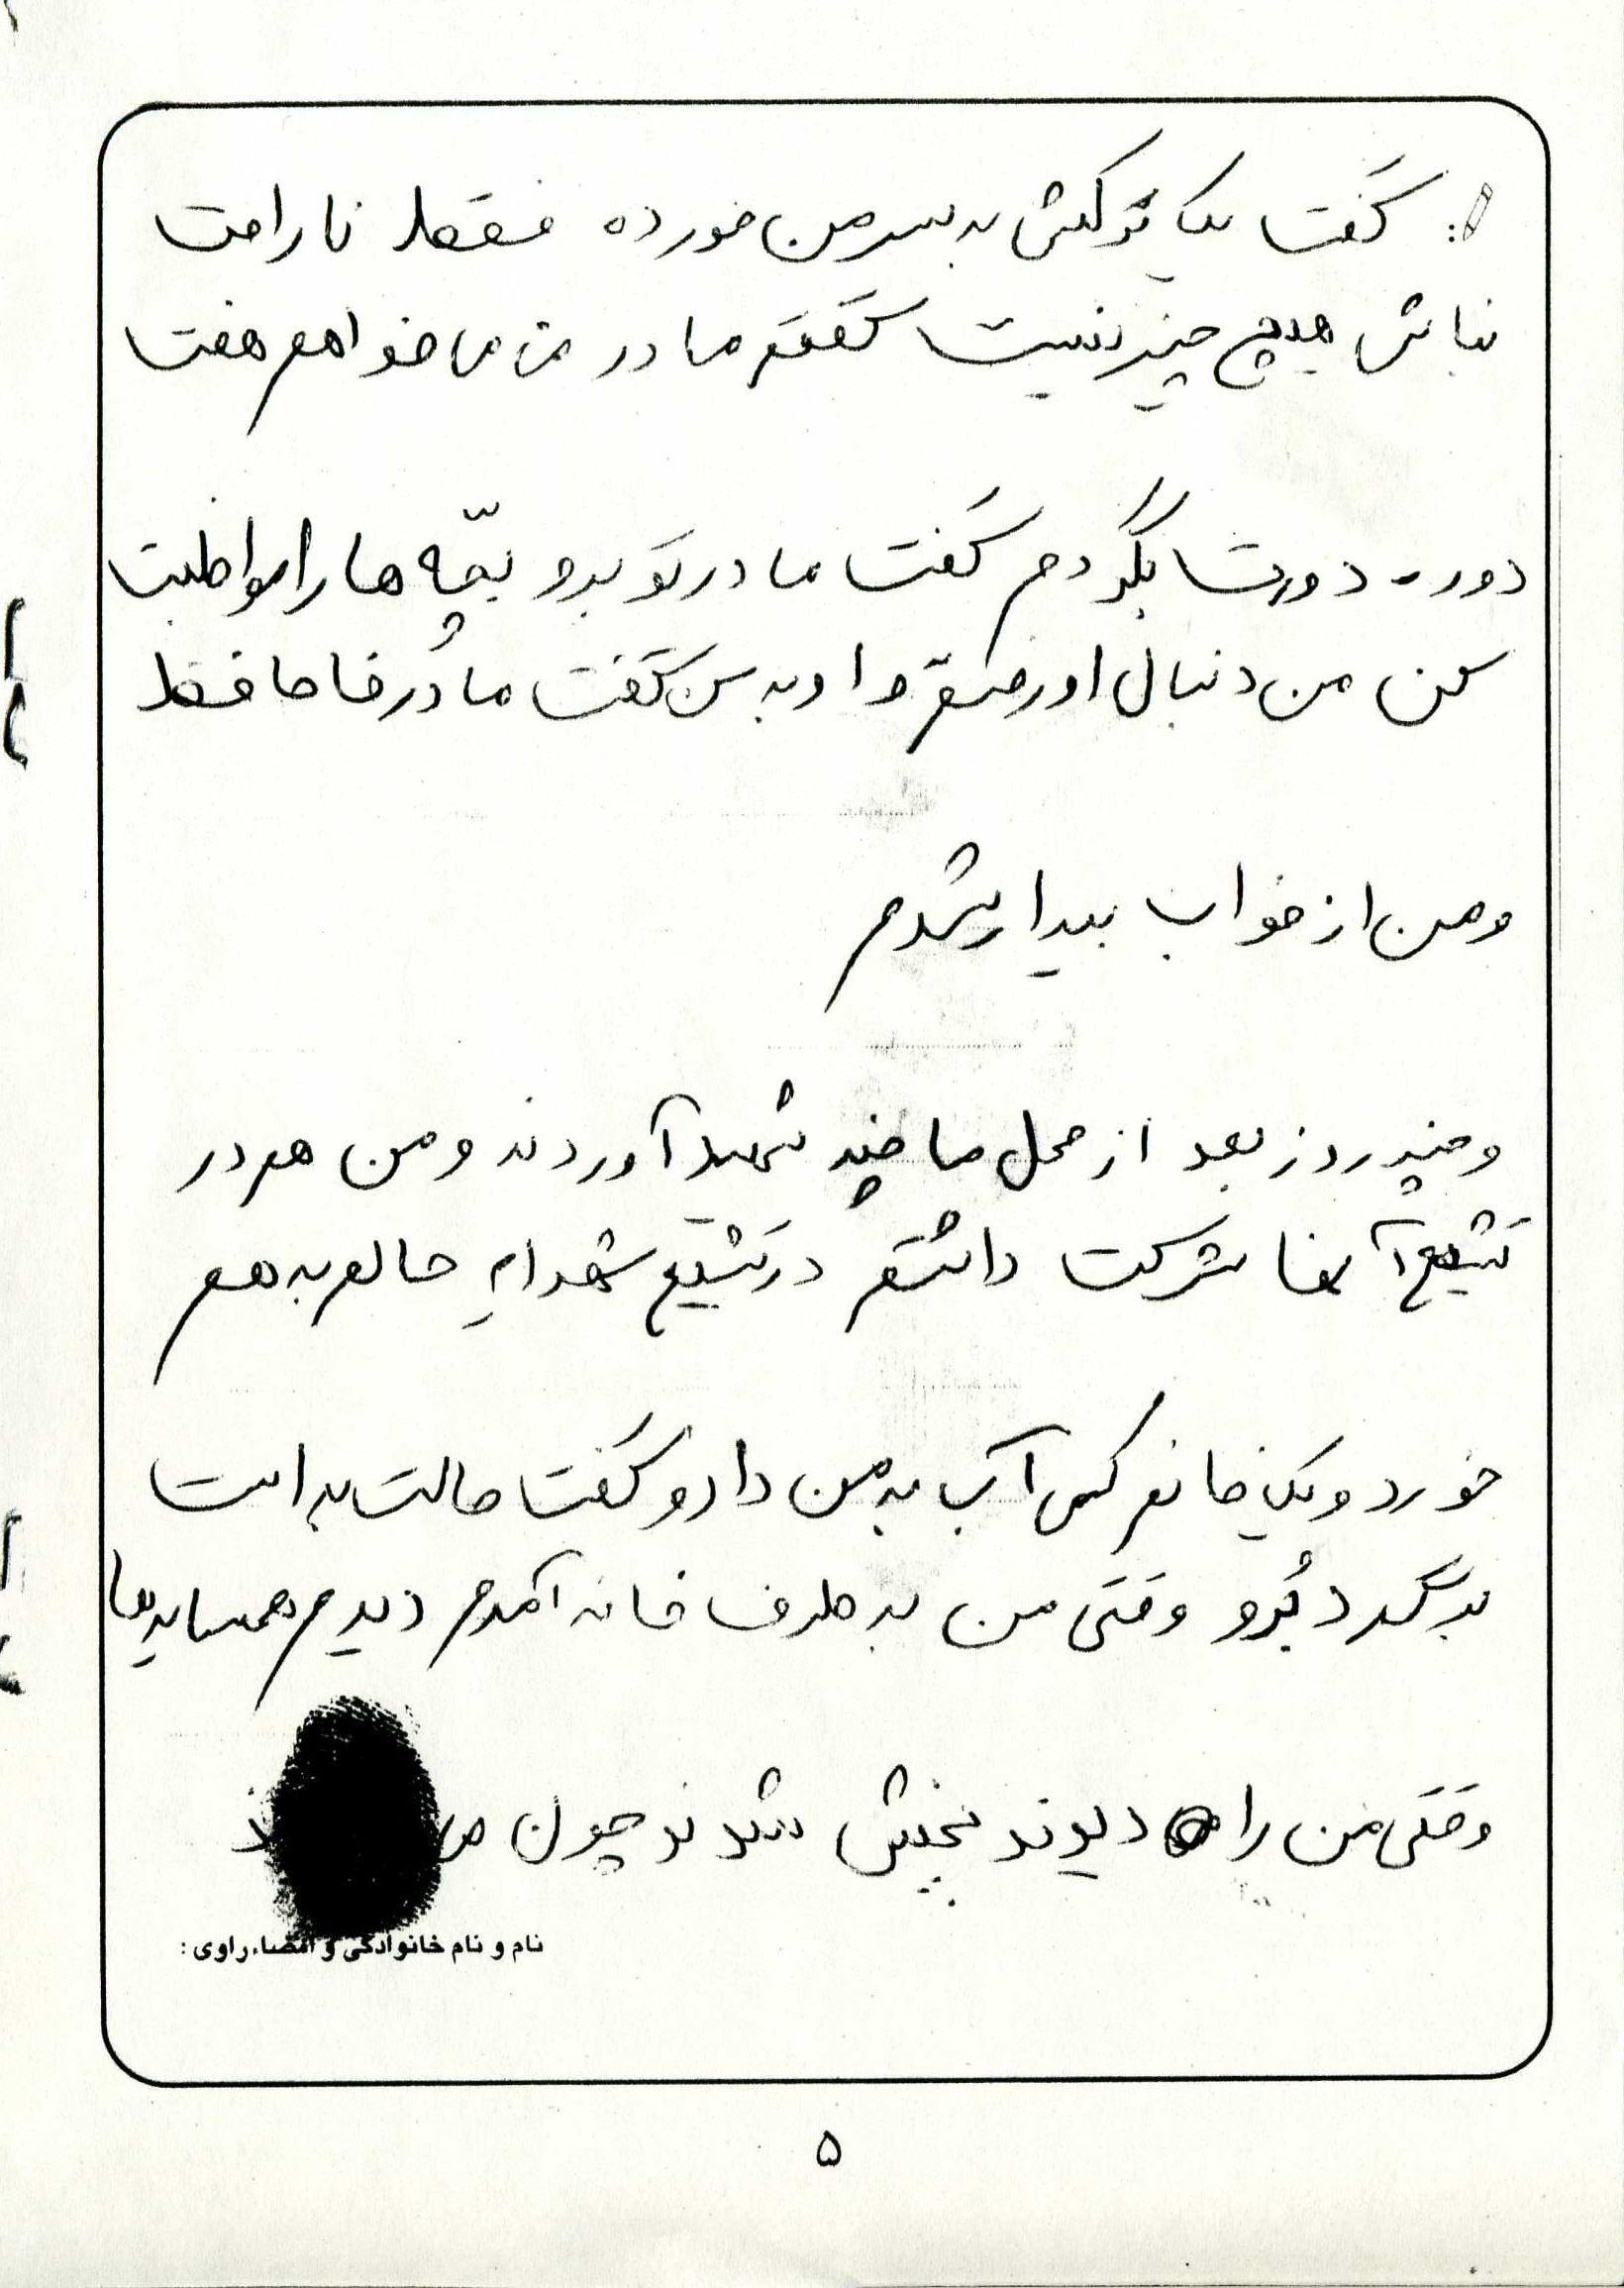 : گفت یک ترکش به سر من خورده فقط ناراحت
نباش هیچ چیز نیست گفتم مادر من می خواهم هفت
دور - دورت بگردم گفت مادر تو برو بچّه ها را مواظبت
کن من دنبال او رفتم و او به من گفت مادر خداحافظ
و من از خواب بیدار شدم
و چند روز بعد از محل ما چند شهید آوردند و من هم در
تشییع آنها شرکت داشتم در تشییع شهدا حالم به هم
خورد و یک خانم کمی آب به من داد و گفت حالت بد است
برگرد برو وقتی من به طرف خانه آمدم دیدم همسایه ها
وقتی من را دیدند پخش شدند چون می
نام و نام خانوادگی و امضاء راوی :
۵